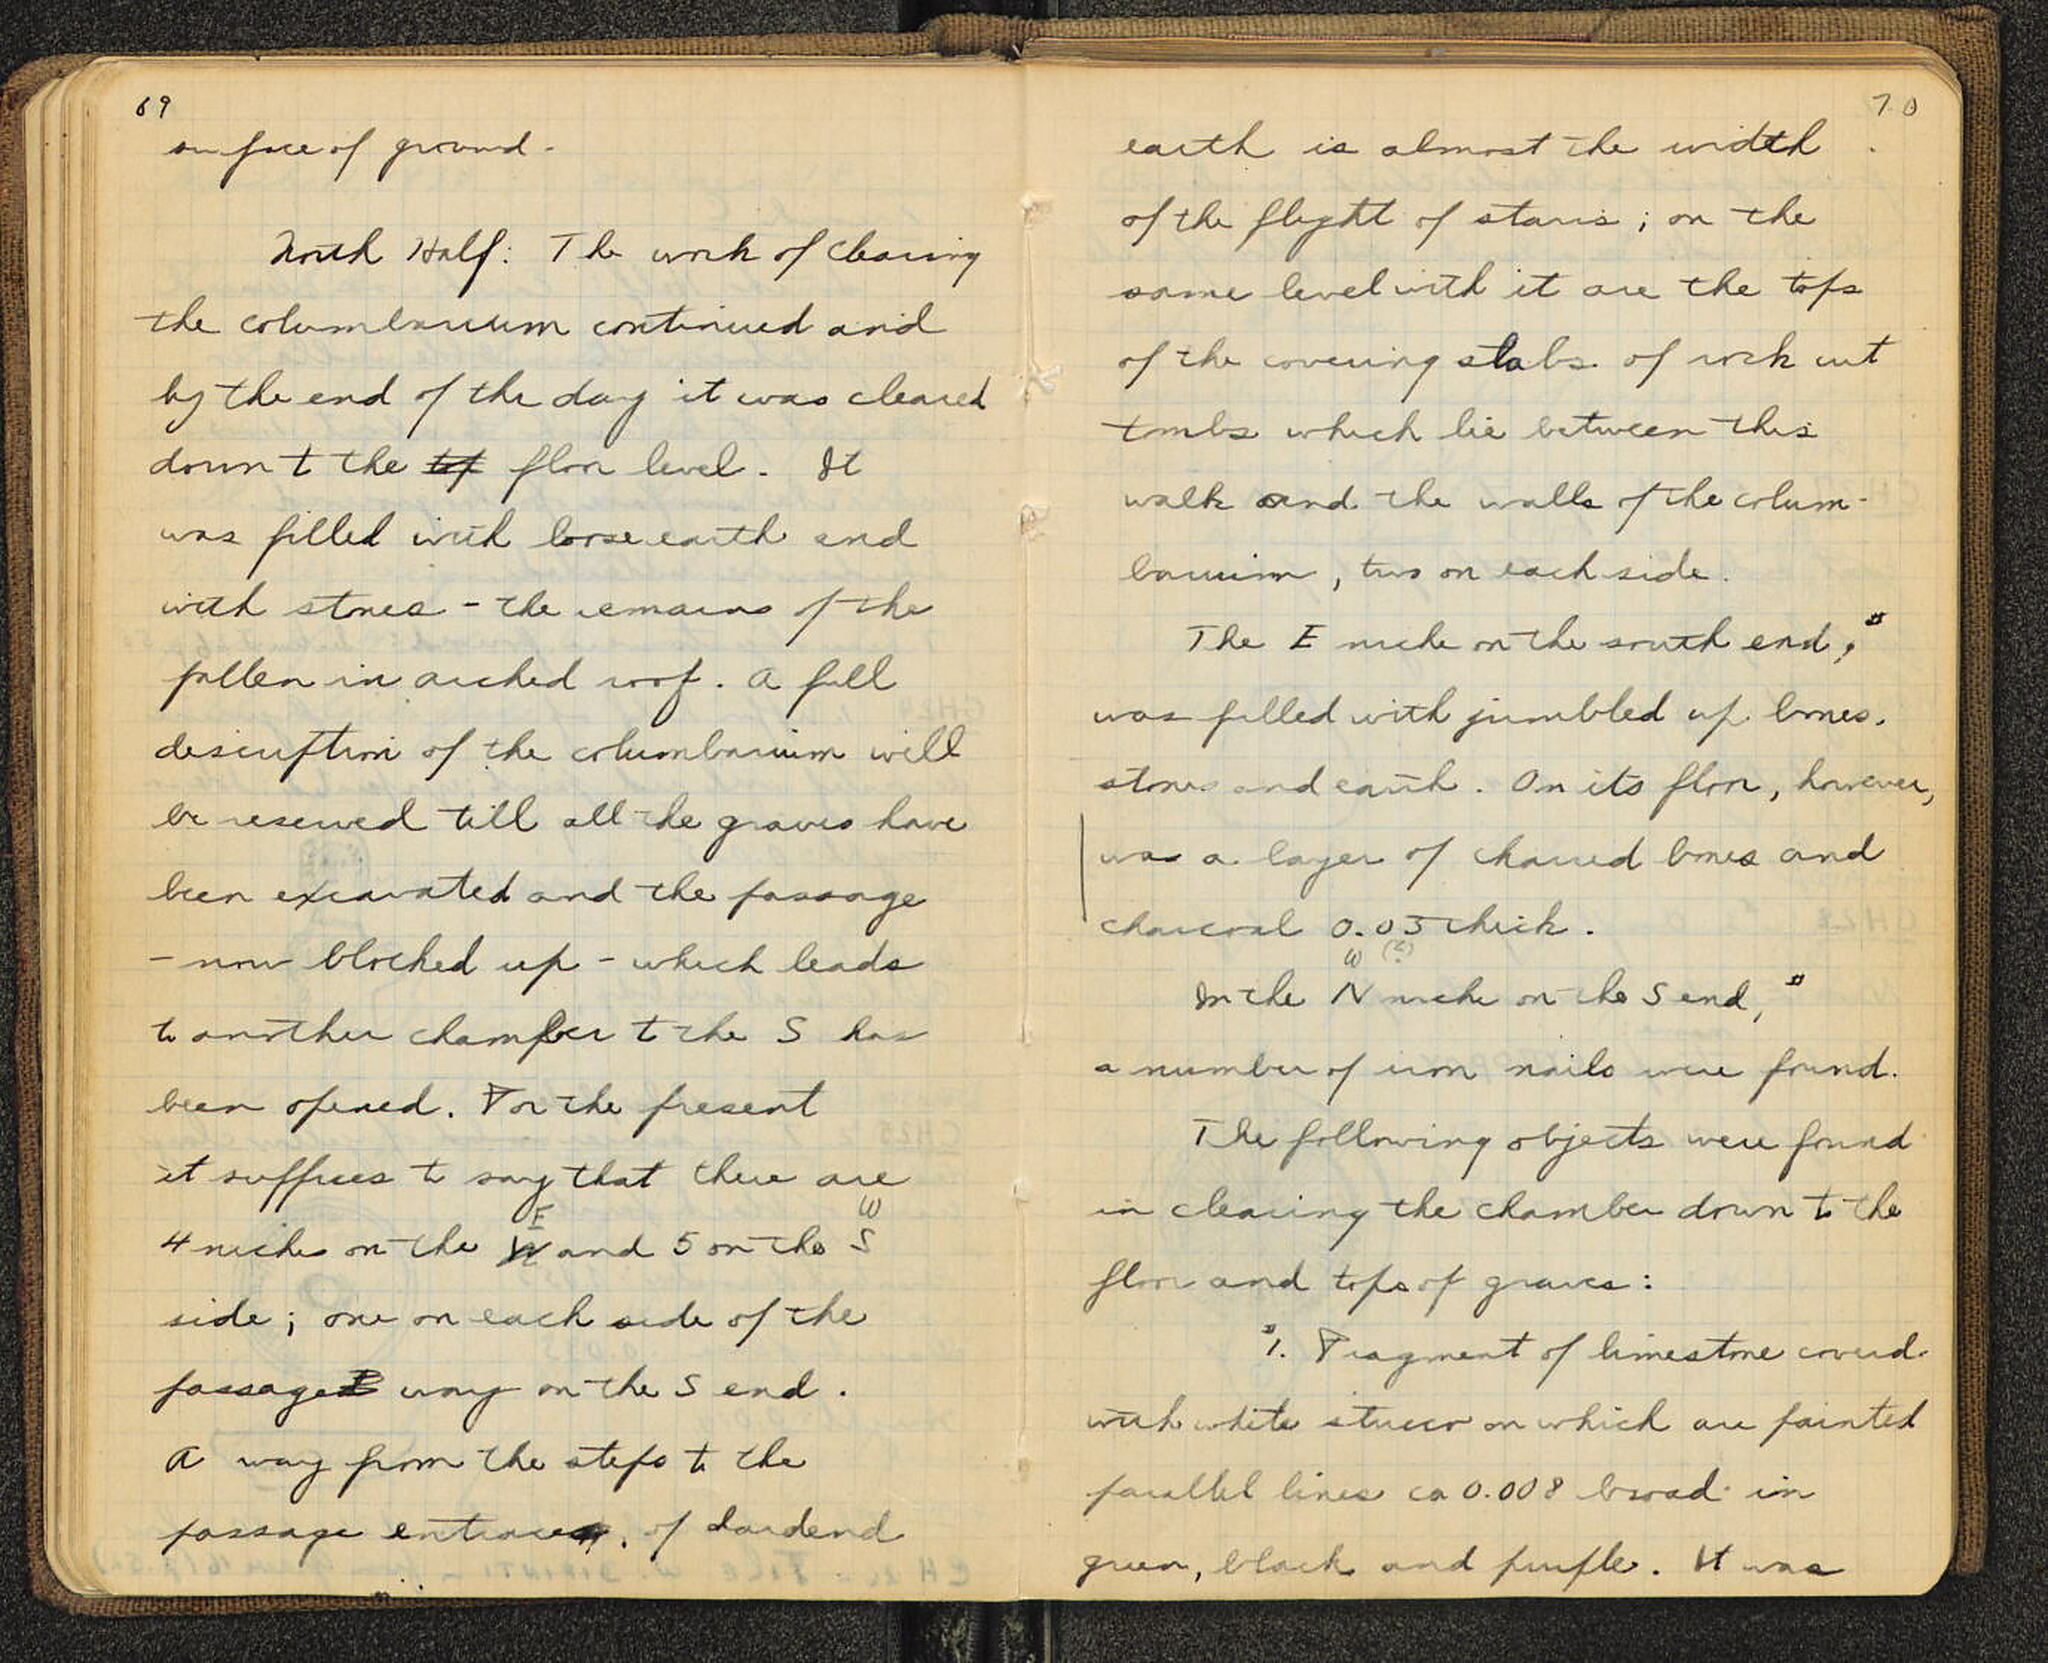 69
surface of ground.
North Half: The work of clearing
the columbarium continued and
by the end of the day it was cleared
down to the top floor level. It
was filled with loose earth and
with stones - the remains of the
fallen in arched roof. A full
description of the columbarium will
be reserved till all the graves have
been excavated and the passage
- now blocked up - which leads
to another chamber to the S has
been opened. For the present
it suffices to say that there are
E W
4 niches on the N and 5 on the S
side; one on each side of the
passage way on the S end.
A way from the steps to the
passage entrance, of hardend
70
earth is almost the width
of the flight of stairs; on the
same level with it are the tops
of the covering slabs of rock cut
tombs which lie between this
walk and the walls of the colum-
barium, two on each side.
The E niche on the south end,
was filled with jumbled up bones,
stones and earth. On its floor, however,
was a layer of charred bones and
charcoal 0.05 thick.
W (?)
In the N niche on the S end,
a number of iron nails were found.
The following objects were found
in clearing the chamber down to the
floor and tops of graves:
1. Fragment of limestone coverd
with white stucco on which are painted
parallel lines ca 0.008 broad in
green, black and purple. It was